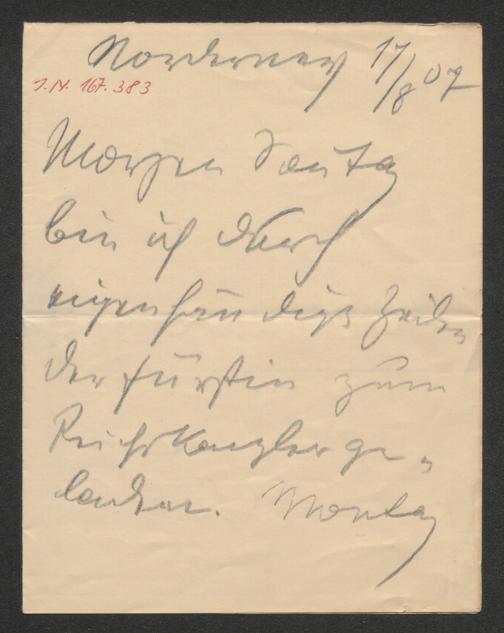 Norderney 17/8 07
I.N. 167.383
Morgen Sontag
bin ich durch
eigenhändige Zeilen
der Fürstin zum
Reichskanzler ge-
laden. Montag